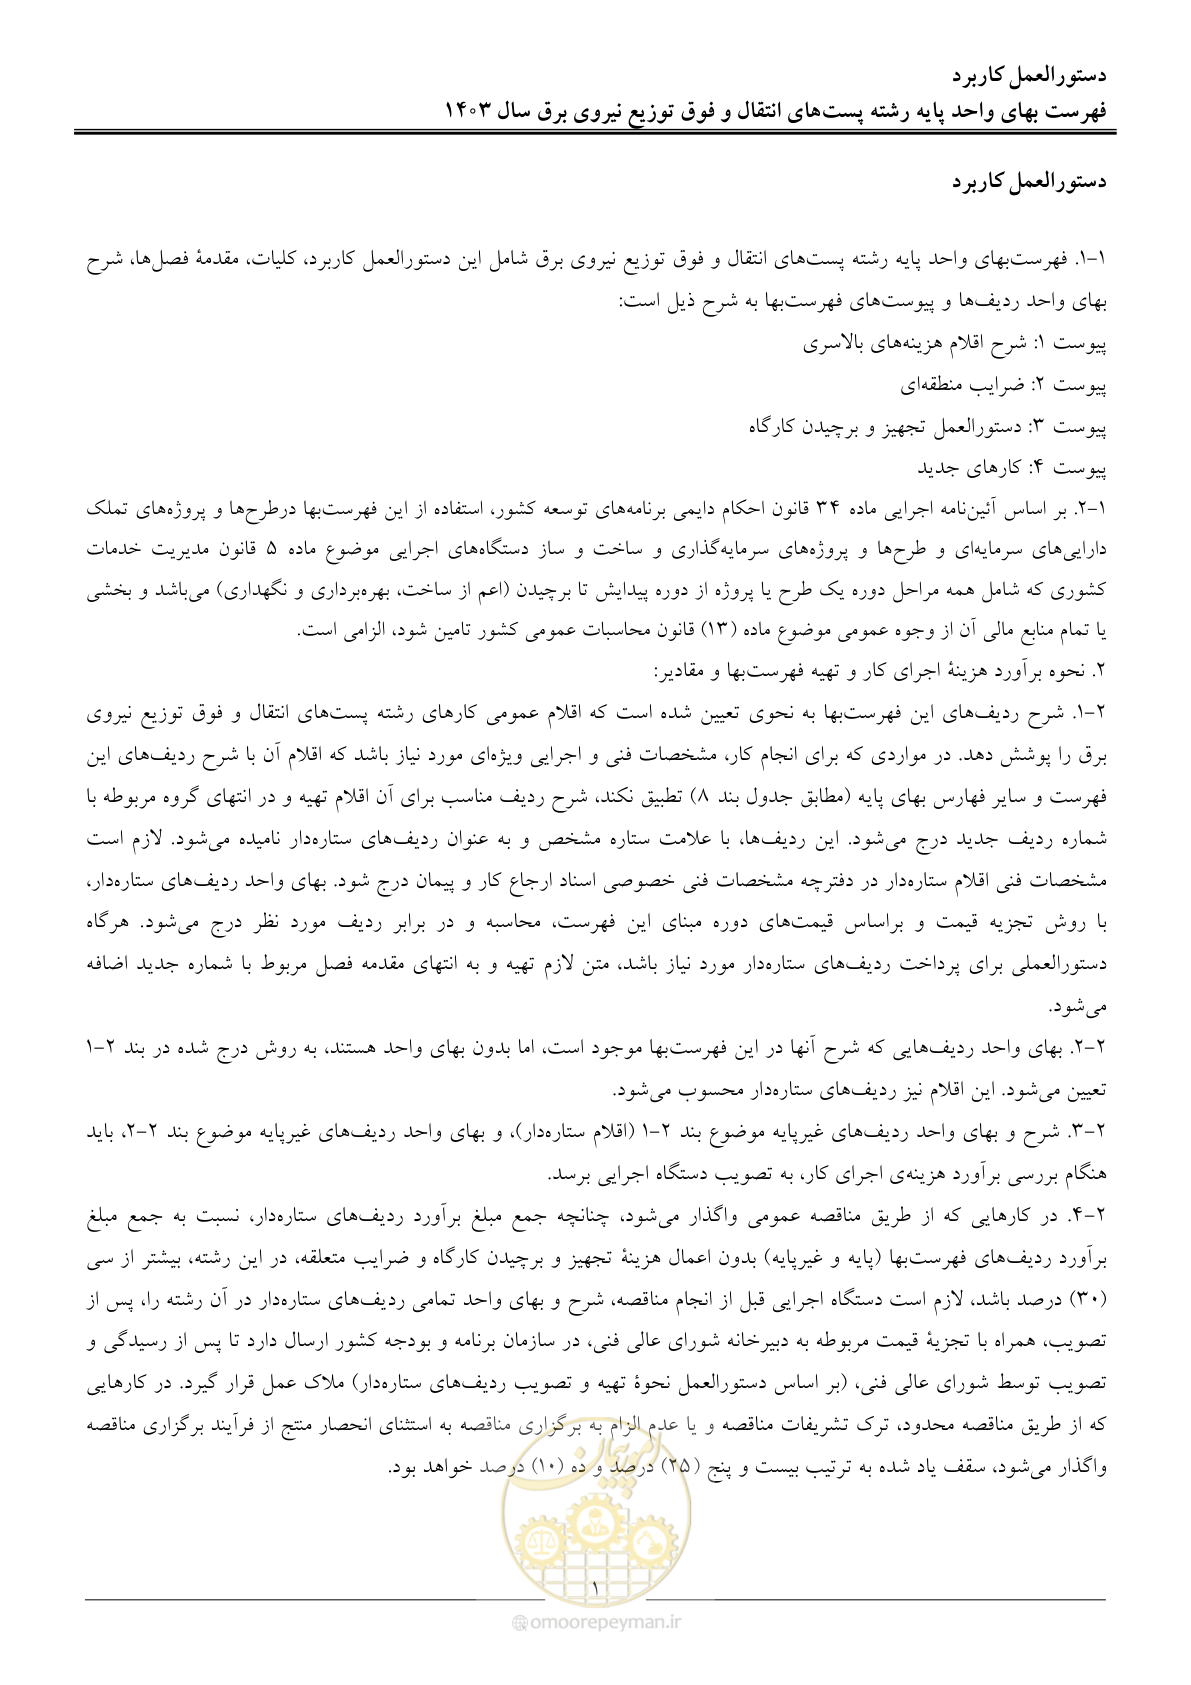 دستورالعمل کاربرد
فهرست بهای واحد پایه رشته پست‌های انتقال و فوق توزیع نیروی برق سال ۱۴۰۳
دستورالعمل کاربرد
۱-۱. فهرست‌بهای واحد پایه رشته پست‌های انتقال و فوق توزیع نیروی برق شامل این دستورالعمل کاربرد، کلیات، مقدمۀ فصل‌ها، شرح
بهای واحد ردیف‌ها و پیوست‌های فهرست‌بها به شرح ذیل است:
پیوست ۱: شرح اقلام هزینه‌های بالاسری
پیوست ۲: ضرایب منطقه‌ای
پیوست ۳: دستورالعمل تجهیز و برچیدن کارگاه
پیوست ۴: کارهای جدید
۱-۲. بر اساس آئین‌نامه اجرایی ماده ۳۴ قانون احکام دایمی برنامه‌های توسعه کشور، استفاده از این فهرست‌بها درطرح‌ها و پروژه‌های تملک
دارایی‌های سرمایه‌ای و طرح‌ها و پروژه‌های سرمایه‌گذاری و ساخت و ساز دستگاه‌های اجرایی موضوع ماده ۵ قانون مدیریت خدمات
کشوری که شامل همه مراحل دوره یک طرح یا پروژه از دوره پیدایش تا برچیدن (اعم از ساخت، بهره‌برداری و نگهداری) می‌باشد و بخشی
یا تمام منابع مالی آن از وجوه عمومی موضوع ماده (۱۳) قانون محاسبات عمومی کشور تامین شود، الزامی است.
۲. نحوه برآورد هزینۀ اجرای کار و تهیه فهرست‌بها و مقادیر:
۲-۱. شرح ردیف‌های این فهرست‌بها به نحوی تعیین شده است که اقلام عمومی کارهای رشته پست‌های انتقال و فوق توزیع نیروی
برق را پوشش دهد. در مواردی که برای انجام کار، مشخصات فنی و اجرایی ویژه‌ای مورد نیاز باشد که اقلام آن با شرح ردیف‌های این
فهرست و سایر فهارس بهای پایه (مطابق جدول بند ۸) تطبیق نکند، شرح ردیف مناسب برای آن اقلام تهیه و در انتهای گروه مربوطه با
شماره ردیف جدید درج می‌شود. این ردیف‌ها، با علامت ستاره مشخص و به عنوان ردیف‌های ستاره‌دار نامیده می‌شود. لازم است
مشخصات فنی اقلام ستاره‌دار در دفترچه مشخصات فنی خصوصی اسناد ارجاع کار و پیمان درج شود. بهای واحد ردیف‌های ستاره‌دار،
با روش تجزیه قیمت و براساس قیمت‌های دوره مبنای این فهرست، محاسبه و در برابر ردیف مورد نظر درج می‌شود. هرگاه
دستورالعملی برای پرداخت ردیف‌های ستاره‌دار مورد نیاز باشد، متن لازم تهیه و به انتهای مقدمه فصل مربوط با شماره جدید اضافه
می‌شود.
۲-۲. بهای واحد ردیف‌هایی که شرح آنها در این فهرست‌بها موجود است، اما بدون بهای واحد هستند، به روش درج شده در بند ۲-۱
تعیین می‌شود. این اقلام نیز ردیف‌های ستاره‌دار محسوب می‌شود.
۲-۳. شرح و بهای واحد ردیف‌های غیرپایه موضوع بند ۲-۱ (اقلام ستاره‌دار)، و بهای واحد ردیف‌های غیرپایه موضوع بند ۲-۲، باید
هنگام بررسی برآورد هزینه‌ی اجرای کار، به تصویب دستگاه اجرایی برسد.
۲-۴. در کارهایی که از طریق مناقصه عمومی واگذار می‌شود، چنانچه جمع مبلغ برآورد ردیف‌های ستاره‌دار، نسبت به جمع مبلغ
برآورد ردیف‌های فهرست‌بها (پایه و غیرپایه) بدون اعمال هزینۀ تجهیز و برچیدن کارگاه و ضرایب متعلقه، در این رشته، بیشتر از سی
(۳۰) درصد باشد، لازم است دستگاه اجرایی قبل از انجام مناقصه، شرح و بهای واحد تمامی ردیف‌های ستاره‌دار در آن رشته را، پس از
تصویب، همراه با تجزیۀ قیمت مربوطه به دبیرخانه شورای عالی فنی، در سازمان برنامه و بودجه کشور ارسال دارد تا پس از رسیدگی و
تصویب توسط شورای عالی فنی، (بر اساس دستورالعمل نحوۀ تهیه و تصویب ردیف‌های ستاره‌دار) ملاک عمل قرار گیرد. در کارهایی
که از طریق مناقصه محدود، ترک تشریفات مناقصه و یا عدم الزام به برگزاری مناقصه به استثنای انحصار منتج از فرآیند برگزاری مناقصه
واگذار می‌شود، سقف یاد شده به ترتیب بیست و پنج (۲۵) درصد و ده (۱۰) درصد خواهد بود.
امور پیمان
۱
@omoorepeyman.ir